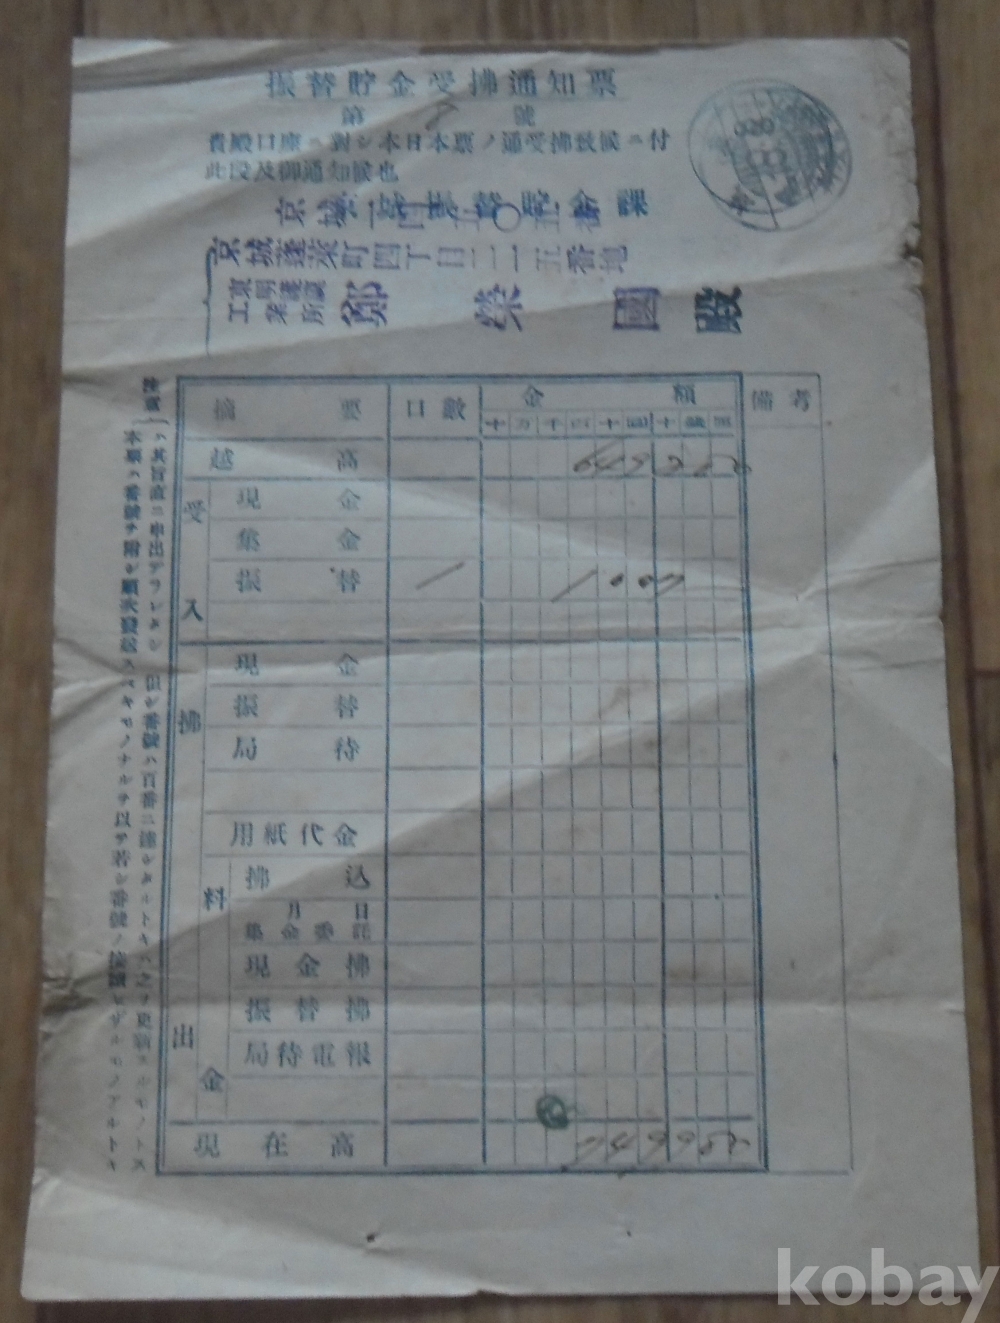 振替貯金受拂通知票
第 8 號
貴殿口座ニ對シ本日本票ノ通受拂致候ニ付
此段及御通知候也
京城蓬萊町四丁目二二一五番地
東明蓬萊
工業所
鄭榮國殿
摘要 口數 金額 備考
十 万 千 百 十 圓 十 錢 厘
越高 649
受入
現金
集金
振替 1 100
拂出
現金
振替
局待
用紙代金
料金
拂込
月 日
集金委託
現金拂
振替拂
局待電報
現在高 749
注意
本票ハ番號ヲ附シ順次發送スベキモノナルヲ以テ若シ番號ノ
ハ其旨直ニ申出デラレタシ 但シ番號ハ百番ニ達シタルトキハ之ヲ更新スルモノトス
kobay